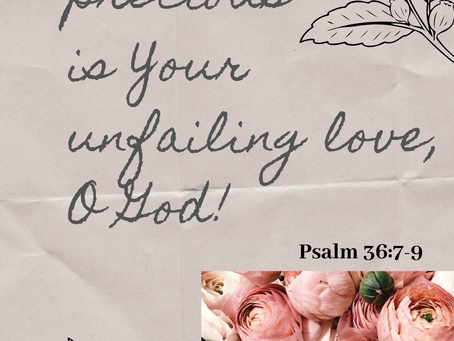 precious
is Your
unfailing love,
O God!
Psalm 36:7-9